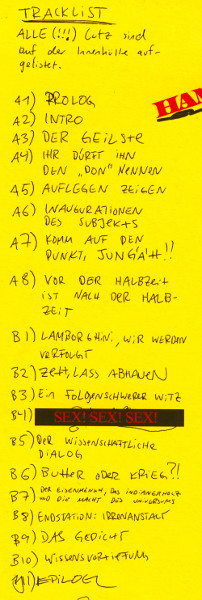 TRACKLIST
ALLE (!!!) Cutz sind
auf der Innenhülle auf-
gelistet.
HAN
A1) PROLOG
A2) INTRO
A3) DER GEILSTE
A4) IHR DÜRFT IHN
DEN „DON" NENNEN
A5) AUFLEGEN ZEIGEN
A6) INAUGURATIONEN
DES SUBJEKTS
A7) KOMM AUF DEN
PUNKT, JUNG'Ä'H!!
A8) VOR DER HALBZEIT
IST NACH DER HALB-
ZEIT
B1) LAMBORGHINI, WIR WERDEN
VERFOLGT
B2) ZETT, LASS ABHAUEN
B3) EIN FOLGENSCHWERER WITZ
B4) SEX! SEX! SEX!
B5) DER WISSENSCHAFTLICHE
DIALOG
B6) BUTTER ODER KRIEG?!
B7) DER EISENMENSCH, DAS INDIANERHOLZ
UND DIE MACHT DES UNIVERSUMS
B8) ENDSTATION: IRRENANSTALT
B9) DAS GEDICHT
B10) WISSENSVORTIEFUNG
B11) EPILOG